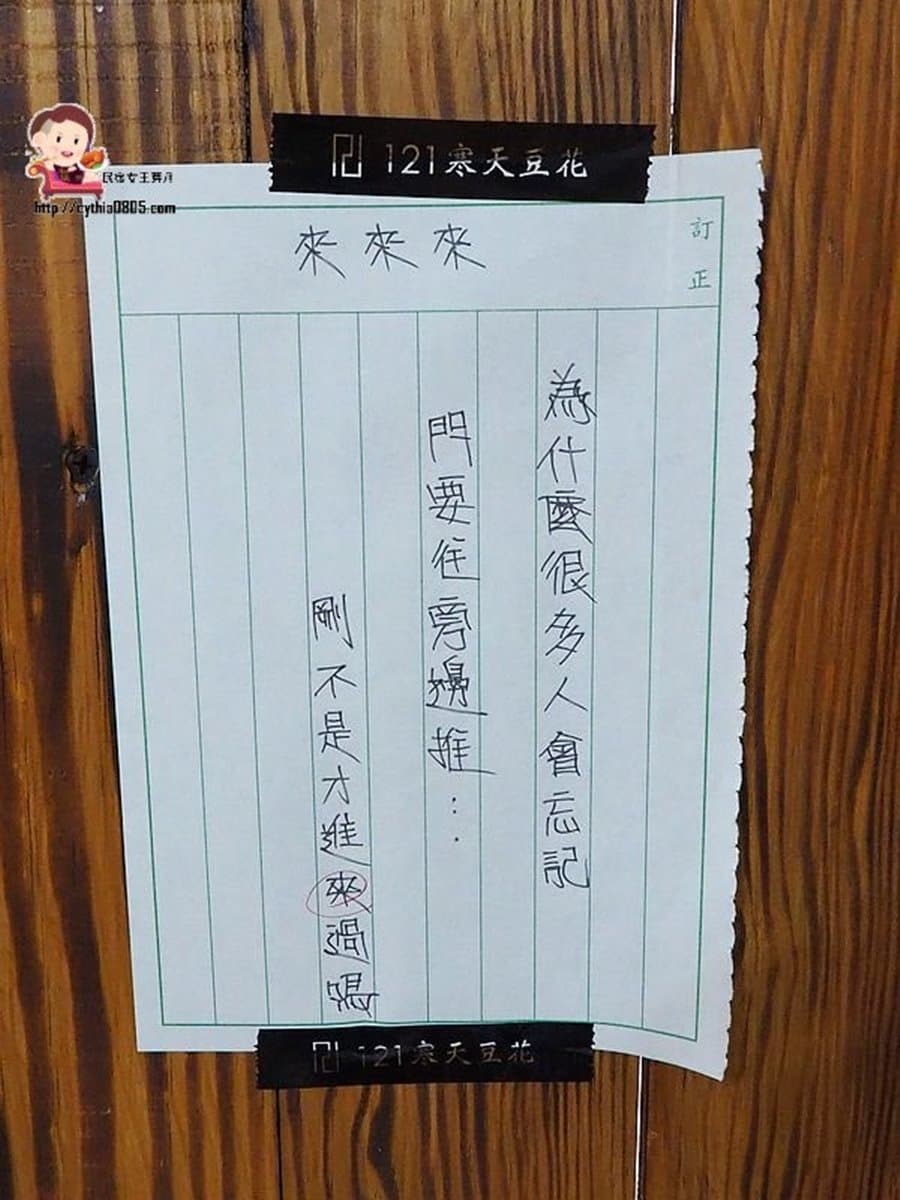 121寒天豆花
民宿女王芽月
http://cythia0805.com
訂正
來來來
為什麼很多人會忘記
門要往旁邊推...
剛不是才進來過嗎
121寒天豆花